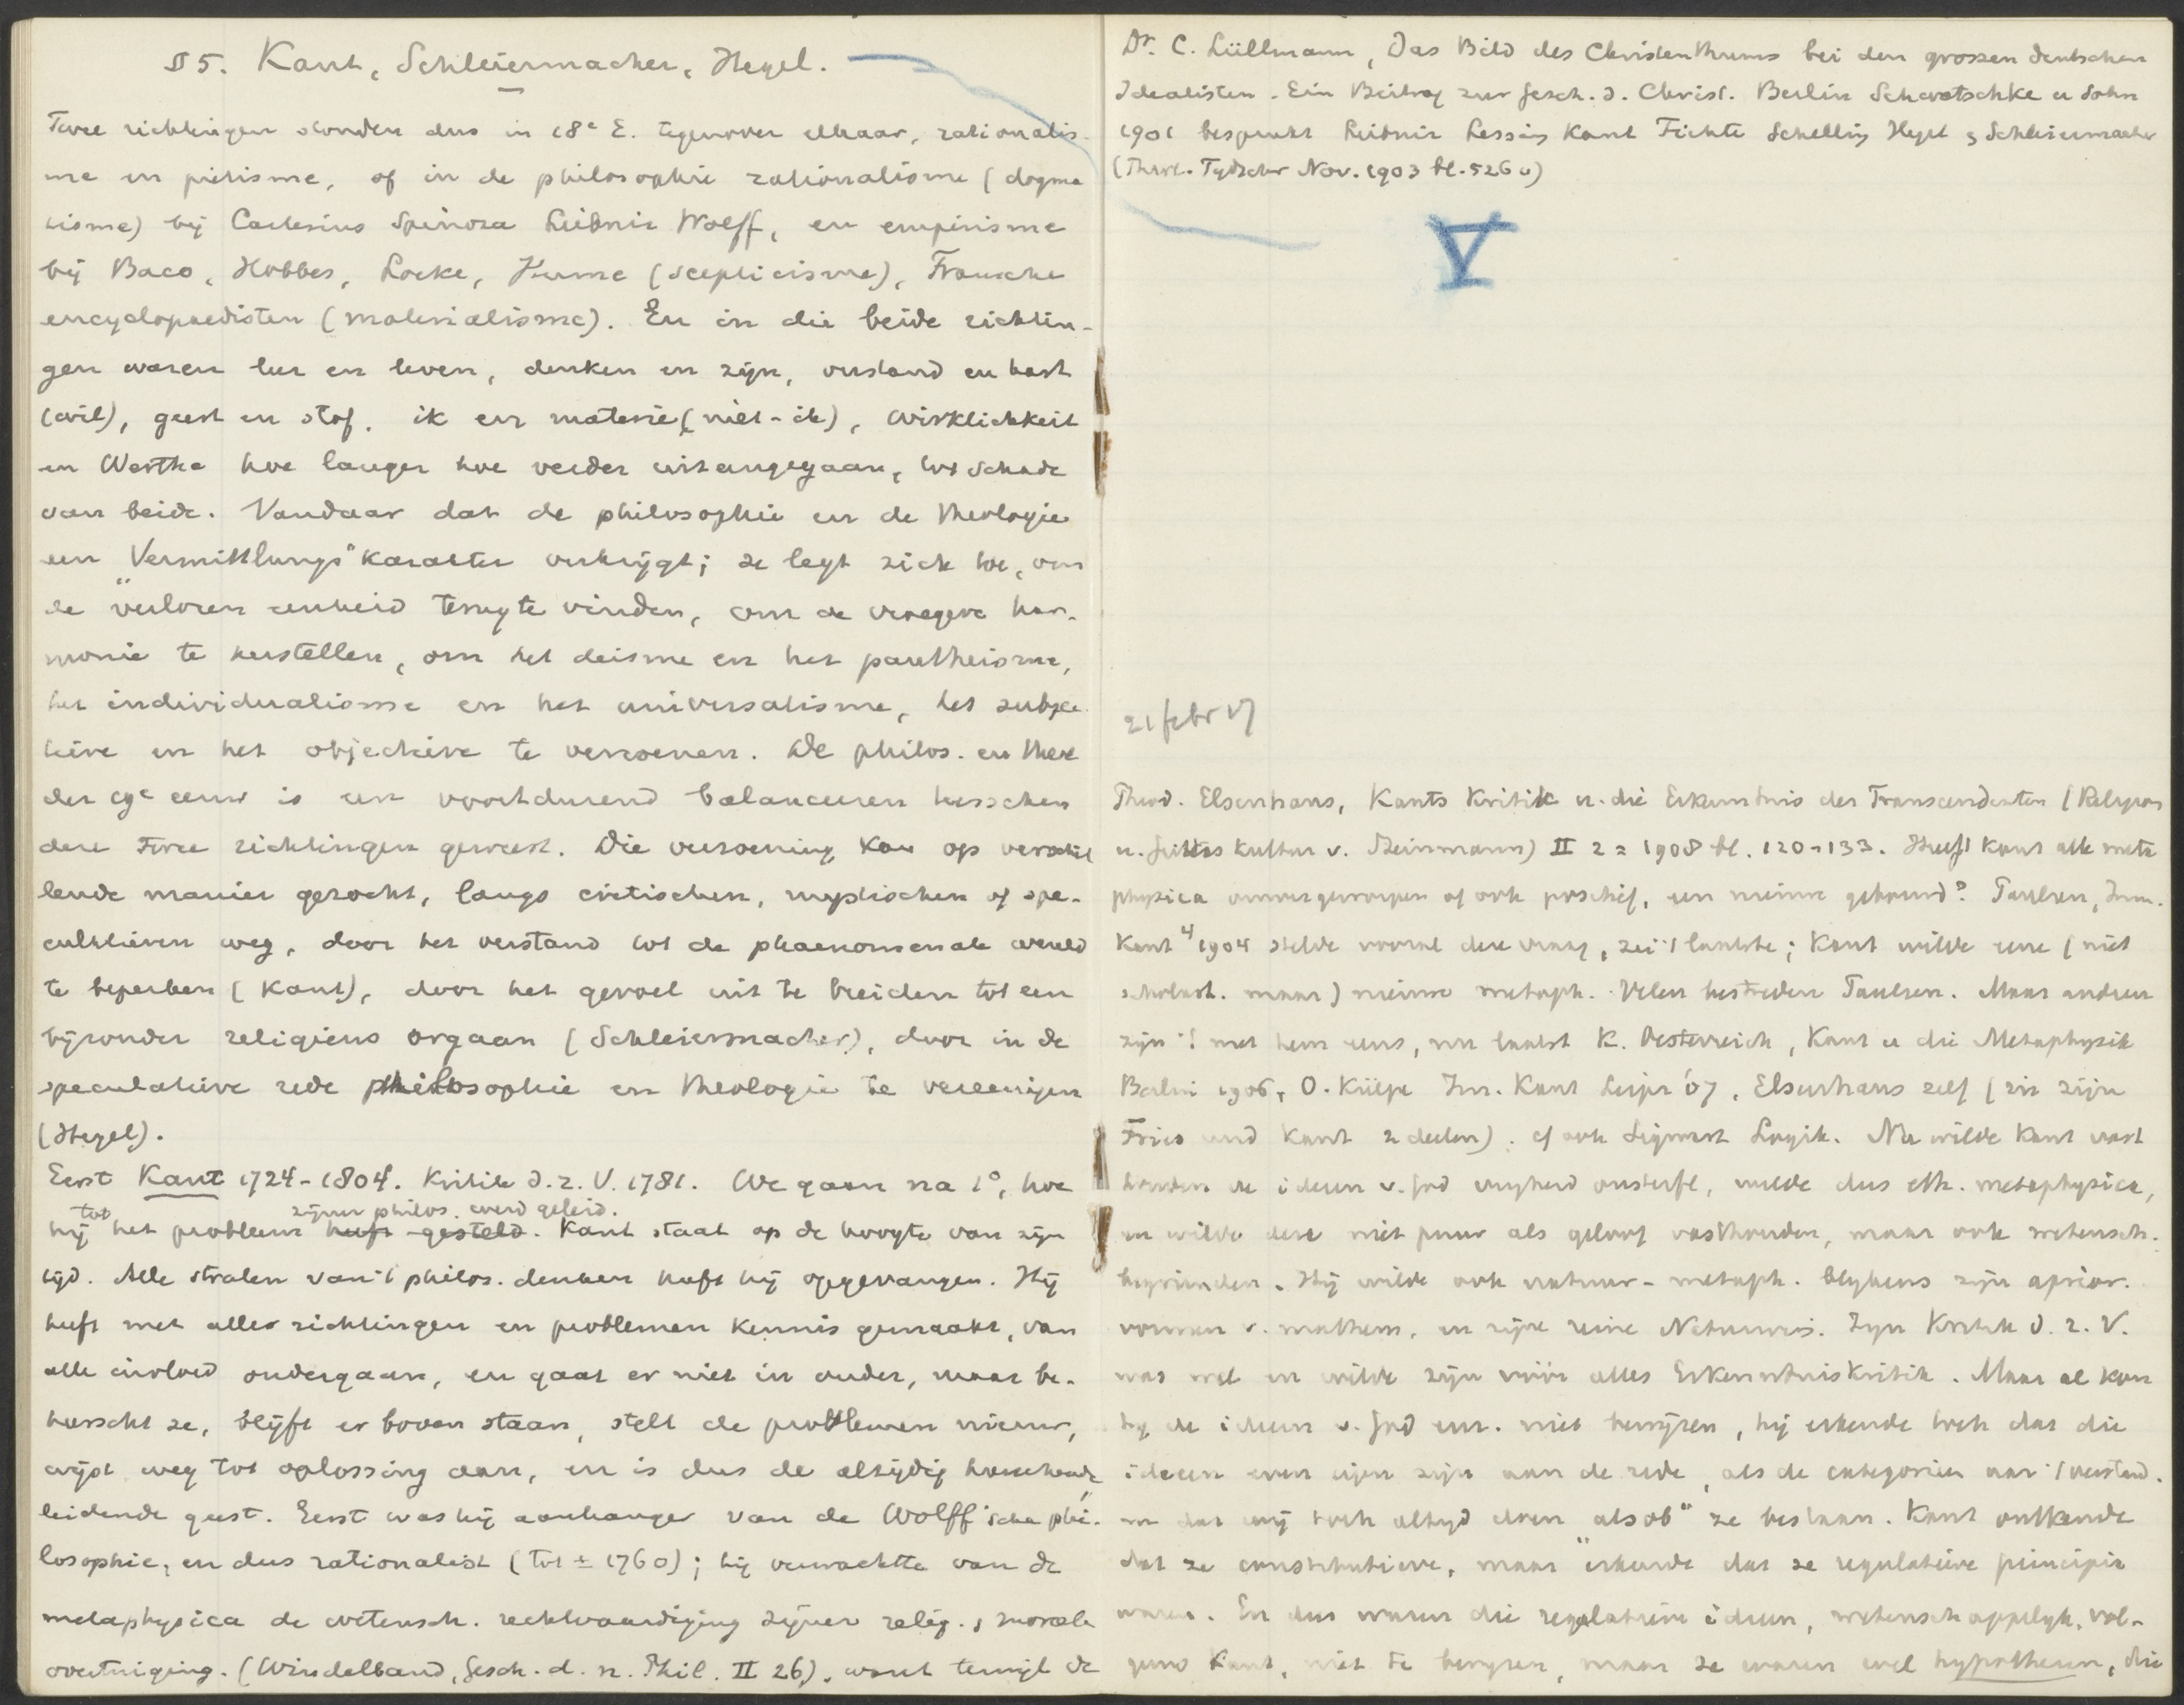 § 5. Kant, Schleiermacher, Hegel.
Twee richtingen stonden dus in 18e E. tegenover elkaar, rationalis-
me en piëtisme, of in de philosophie rationalisme (dogma
tisme) bij Cartesius Spinoza Leibniz Wolff, en empirisme
bij Baco, Hobbes, Locke, Hume (scepticisme), Fransche
encyclopaedisten (materialisme). En in die beide richtin-
gen waren leer en leven, denken en zijn, verstand en hart
(wil), geest en stof, ik en materie (niet-ik), Wirklichkeit
en Werthe hoe langer hoe verder uiteengegaan, tot schade
van beide. Vandaar dat de philosophie en de theologie
een "Vermittlungs" karakter verkrijgt; ze legt zich toe, om
de verloren eenheid terug te vinden, om de vroegere har-
monie te herstellen, om het deisme en het pantheisme,
het individualisme en het universalisme, het subjec
tieve en het objectieve te verzoenen. De philos. en theol
der 19e eeuw is een voortdurend balanceeren tusschen
deze twee richtingen geweest. Die verzoening kon op verschil
lende manier gezocht, langs critischen, mystischen of spe-
culatieven weg, door het verstand tot de phaenomenale wereld
te beperken (Kant), door het gevoel uit te breiden tot een
bijzonder religieus orgaan (Schleiermacher), door in de
speculatieve rede philosophie en theologie te vereenigen
(Hegel).
Eerst Kant 1724-1804. Kritik d. r. V. 1781. We gaan na 1°, hoe
hij tot het probleem heeft gesteld zijner philos. werd geleid. Kant staat op de hoogte van zijn
tijd. Alle stralen van 't philos. denken heeft hij opgevangen. Hij
heeft met alle richtingen en problemen kennis gemaakt, van
alle invloed ondergaan, en gaat er niet in onder, maar be-
heerscht ze, blijft er boven staan, stelt de problemen nieuw,
wijst weg tot oplossing aan, en is dus de altijd
leidende geest. Eerst was hij aanhanger van de Wolff'sche phi-
losophie, en dus rationalist (tot ± 1760); hij verwachtte van de
metaphysica de wetensch. rechtvaardiging zijner relig. & moreele
overtuiging. (Windelband, Gesch. d. n. Phil. II 26), want terwijl de
Dr. C. Lüllmann, Das Bild des Christenthums bei den grossen deutschen
Idealisten. Ein Beitrag zur Gesch. d. Christ. Berlin Schwetschke u Sohn
1901 bespreekt Leibniz Lessing Kant Fichte Schelling Hegel & Schleiermacher
(Theol. Tydschr Nov. 1903 bl. 526 v)
V
21 febr 17
Theod. Elsenhans, Kants Kritik u. die Erkenntnis des Transcendenten (Religion
u. Geisteskultur v. Steinmann) II 2 = 1908 bl. 120-133. Heeft Kant alle meta
physica omvergeworpen of ook positief, een nieuwe gebouwd? Paulsen, Imm.
Kant 4 1904 stelde vooral deze vraag, zei 't laatste; Kant wilde eene (niet
scholast. maar) nieuwe metaph. Velen bestreden Paulsen. Maar andren
zijn 't met hem eens, nu laatst K. Oesterreich, Kant u die Metaphysik
Berlin 1906, O. Külpe Imm. Kant Leipz '07, Elsenhans zelf (in zijn
Fries und Kant 2 deelen). cf ook Sigwart Logik. Nu wilde Kant vast
houden de ideeen v. God vryheid onsterfl, wilde dus eth. metaphysica,
en wilde deze niet puur als geloof vasthouden, maar ook wetensch.
begronden. Hij wilde ook natuur-metaph. blykens zijn aprior.
vormen v. mathem. en zijne reine Naturwis. Zijn Kritik d. r. V.
was wel en wilde zijn vóór alles Erkenntniskritik. Maar al kon
hy de ideeen v. God enz. niet bewijzen, hij erkende toch dat die
ideeen even eigen zijn aan de rede, als de categorieen aan 't verstand.
en dat wij toch altyd doen "alsob" ze bestaan. Kant ontkende
dat ze constitutieve, maar erkende dat ze regulatieve principia
waren. En dus waren die regulatieve ideeen, wetenschappelyk, vol-
gens Kant, niet te bewyzen, maar ze waren wel hypothesen, die